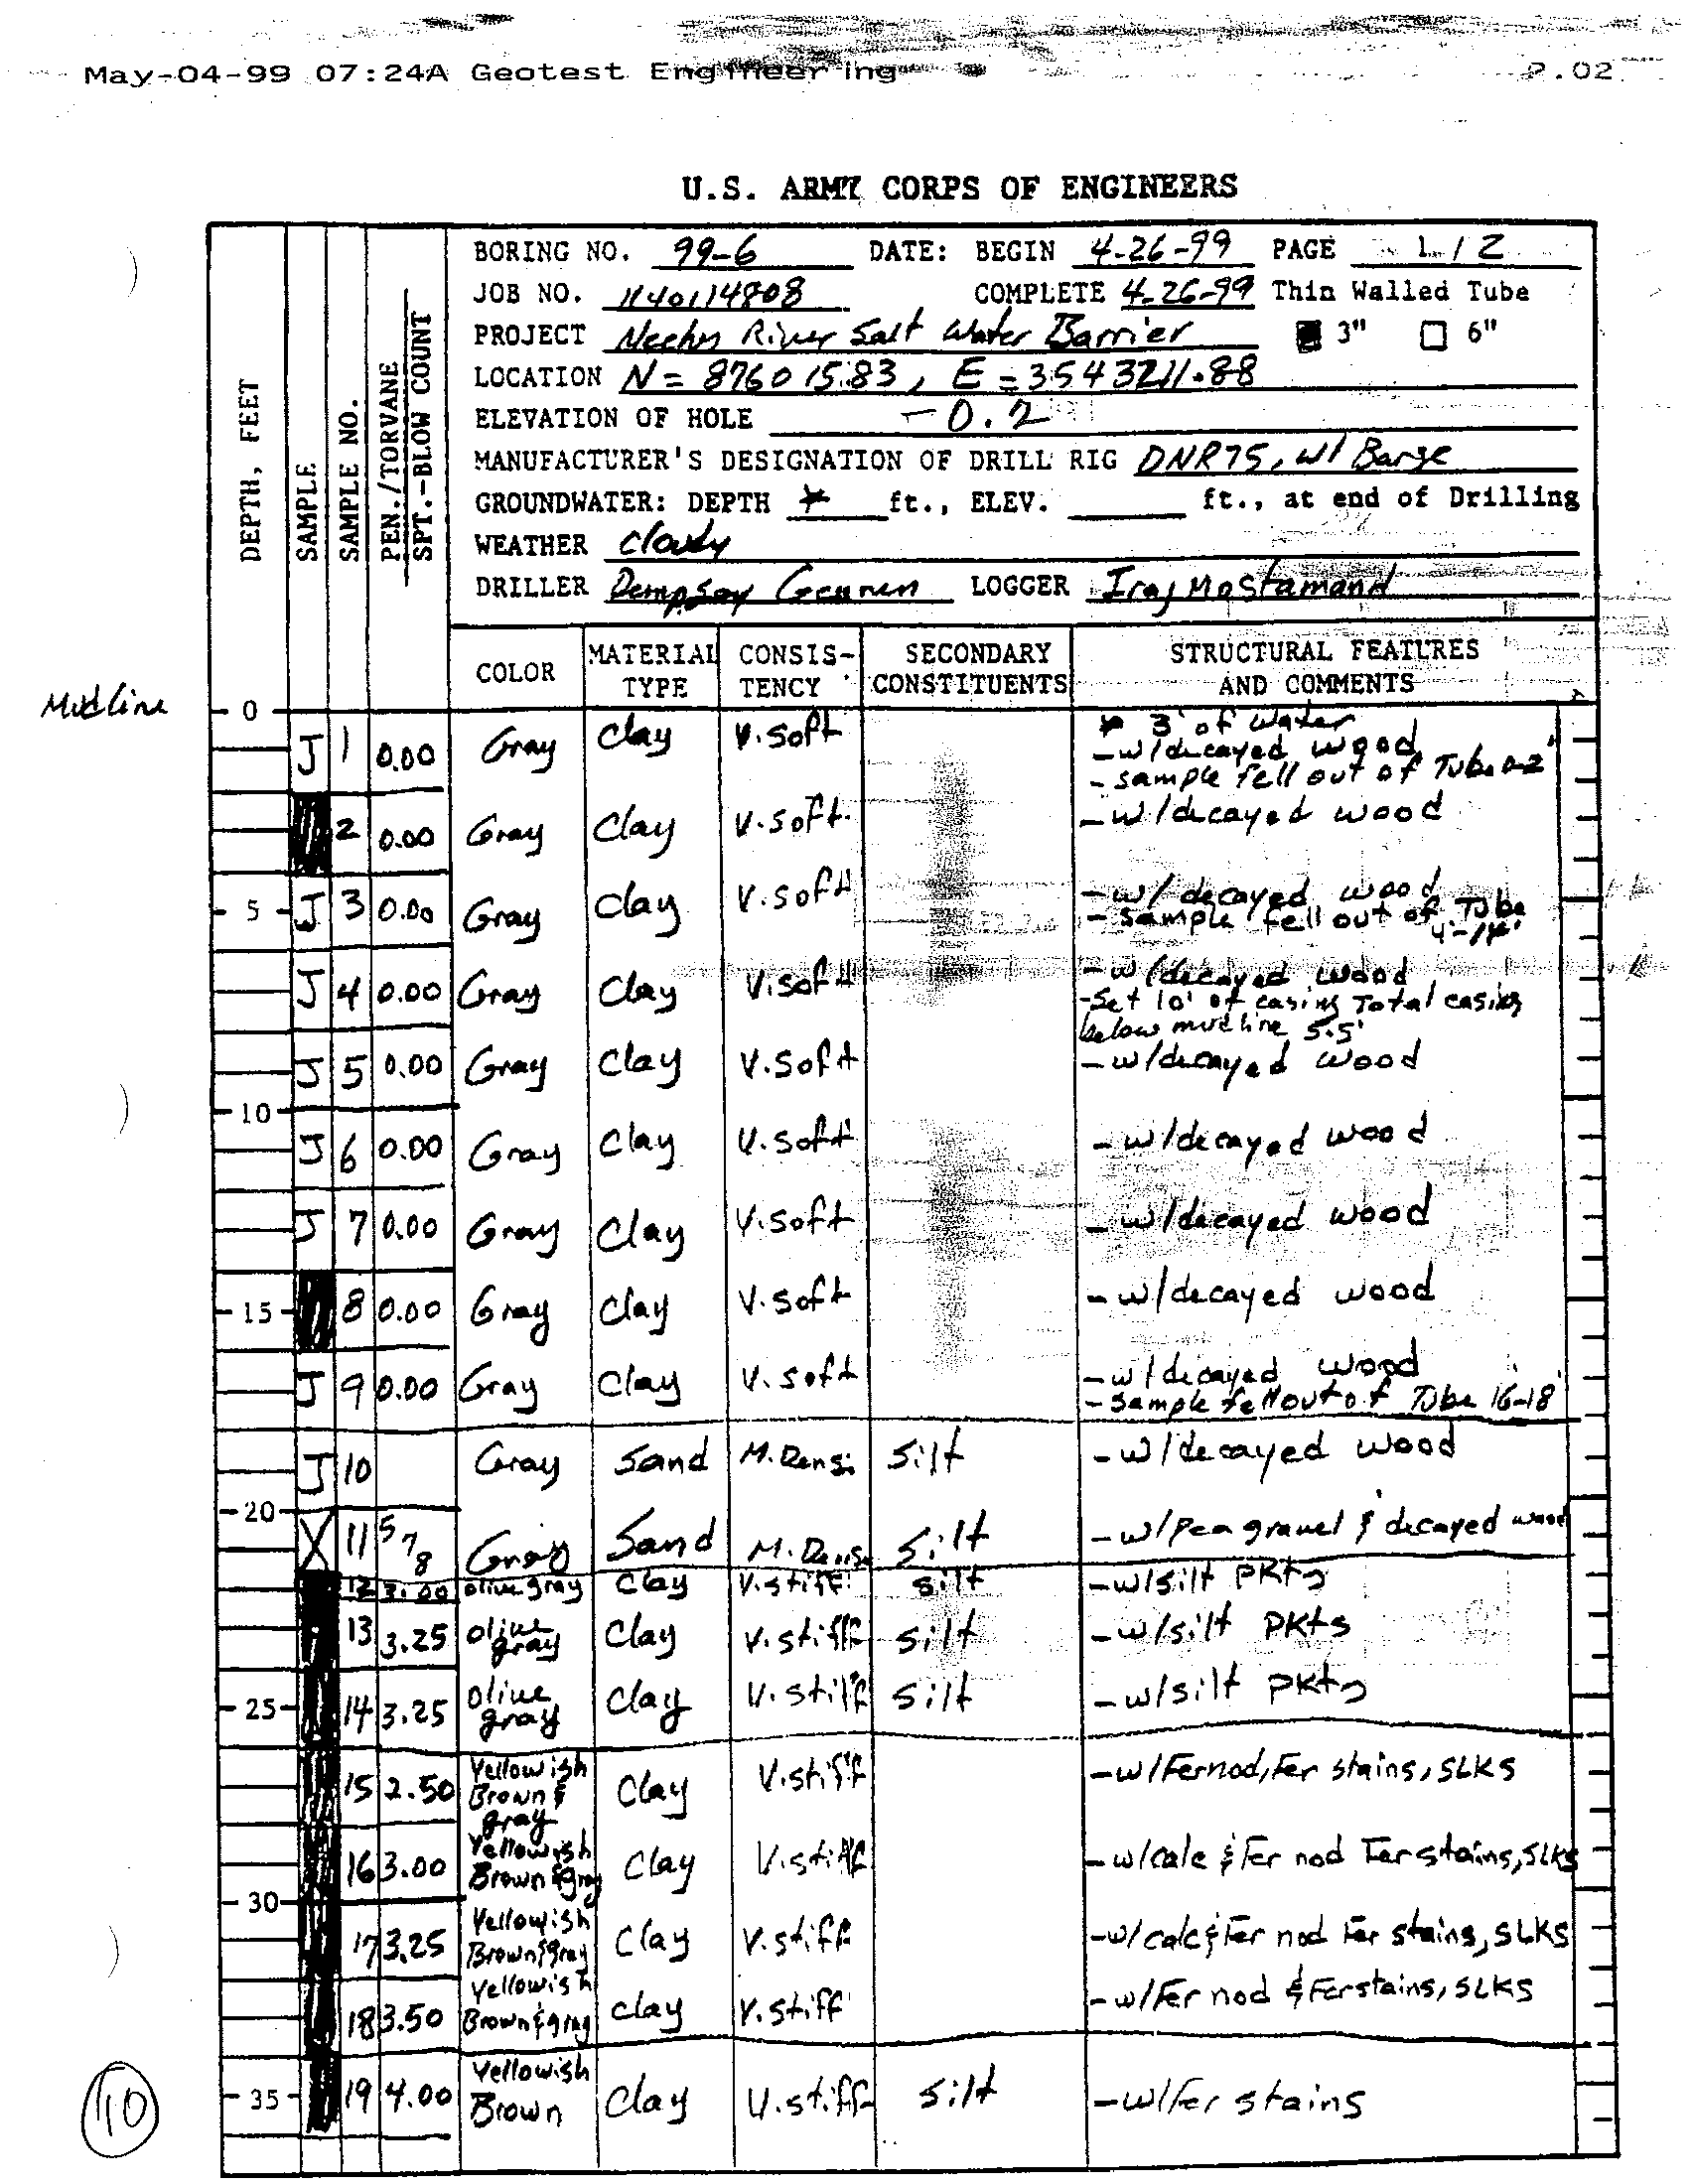 May-04-99 07:24A Geotest Engineering P.02
U.S. ARMY CORPS OF ENGINEERS
BORING NO. 99-6 DATE: BEGIN 4-26-99 PAGE 1 / 2
JOB NO. 1140114808 COMPLETE 4-26-99 Thin Walled Tube
PROJECT Neches River Salt Water Barrier 3" 6"
LOCATION N = 876015.83, E = 3543211.88
ELEVATION OF HOLE -0.2
MANUFACTURER'S DESIGNATION OF DRILL RIG DNR75, w/ Barge
GROUNDWATER: DEPTH * ft., ELEV. ft., at end of Drilling
WEATHER Cloudy
DRILLER Dempsey LOGGER Iraj Mostamand
DEPTH, FEET
SAMPLE
SAMPLE NO.
PEN./TORVANE
SPT.-BLOW COUNT
COLOR MATERIAL TYPE CONSIS-TENCY SECONDARY CONSTITUENTS STRUCTURAL FEATURES AND COMMENTS
Mudline 0
* 3' of water
J 1 0.00 Gray Clay V.Soft -w/decayed wood
- sample fell out of Tube 0-2'
2 0.00 Gray Clay V.Soft. -w/decayed wood
5 J 3 0.00 Gray Clay V.Soft -w/ decayed wood
- Sample fell out of Tube
J 4 0.00 Gray Clay V.Soft -w/decayed wood
-Set 10' of casing Total casing
below mudline 5.5'
J 5 0.00 Gray Clay V.Soft -w/decayed wood
10
J 6 0.00 Gray Clay V.Soft -w/decayed wood
J 7 0.00 Gray Clay V.Soft -w/decayed wood
15 8 0.00 Gray Clay V.Soft -w/decayed wood
J 9 0.00 Gray Clay V.Soft -w/decayed wood
- Sample fell out of Tube 16-18'
J 10 Gray Sand M.Dens. Silt -w/decayed wood
20
11 5 7 8 Gray Sand M.Dense Silt -w/Pea gravel & decayed wood
12 3.00 olive gray Clay V.stiff silt -w/silt PKts
13 3.25 olive gray Clay V.stiff silt -w/silt PKts
25 14 3.25 olive gray Clay V.stiff silt -w/silt PKts
15 2.50 Yellowish Brown & gray Clay V.stiff -w/Fer nod, Fer stains, SLKS
16 3.00 Yellowish Brown & gray Clay V.stiff -w/calc & Fer nod Fer stains, SLKS
30
17 3.25 Yellowish Brown & gray Clay V.stiff -w/calc & Fer nod Fer stains, SLKS
18 3.50 Yellowish Brown & gray Clay V.stiff -w/Fer nod & Fer stains, SLKS
35 19 4.00 Yellowish Brown Clay V.stiff silt -w/Fer stains
10